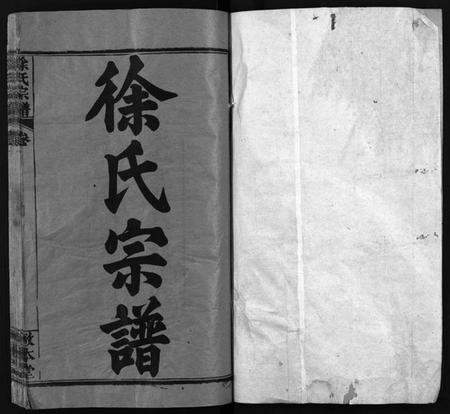 徐氏宗譜
徐氏宗譜
卷
敦本堂